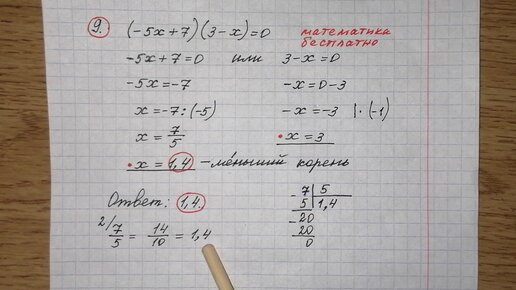 9. (-5x+7)(3-x)=0
математика
бесплатно
-5x+7=0 или 3-x=0
-5x=-7 -x=0-3
x=-7:(-5) -x=-3 |·(-1)
x=7/5 x=3
x=1,4 - меньший корень
Ответ: 1,4.
2/ 7/5 = 14/10 = 1,4
7 | 5
5 | 1,4
-20
20
0